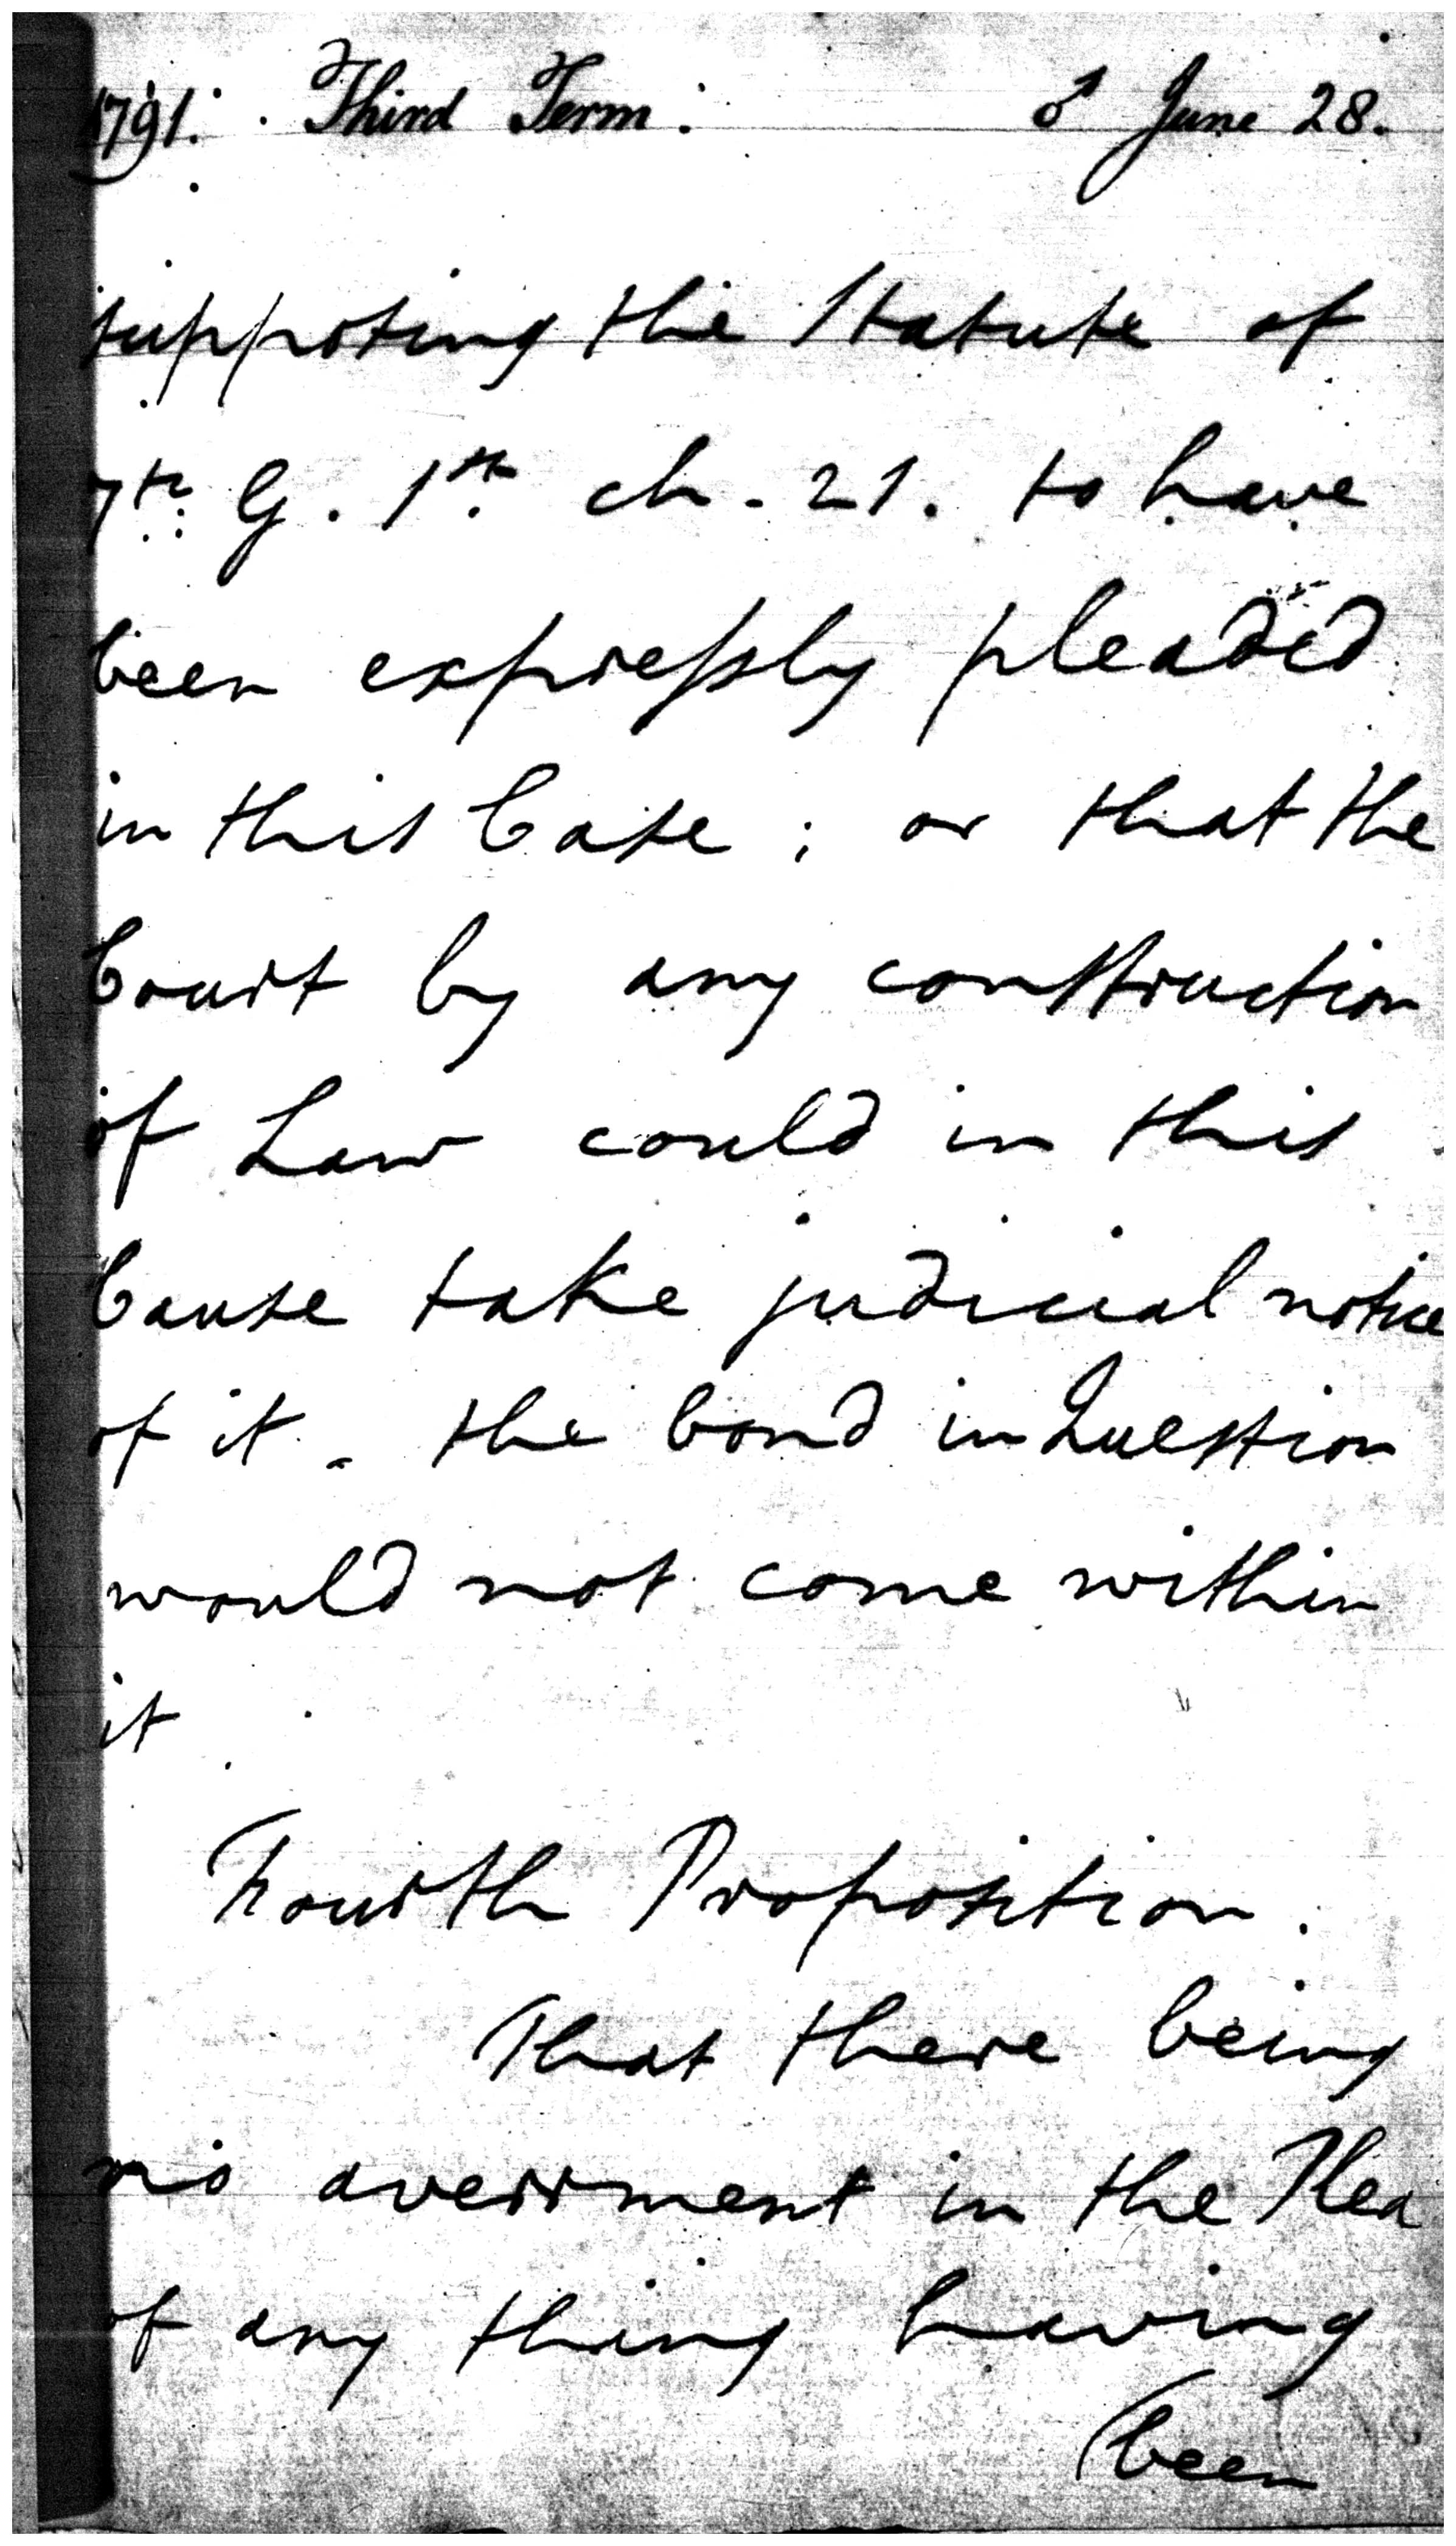 1791. Third Term. ♂ June 28.
supposing the Statute of
7th. G. 1st. ch. 21. to have
been expressly pleaded
in this Case; or that the
Court by any construction
of Law could in this
Cause take judicial notice
of it - the bond in Question
would not come within
it.
Fourth Proposition.
That there being
no averrment in the Plea
of any thing having
been